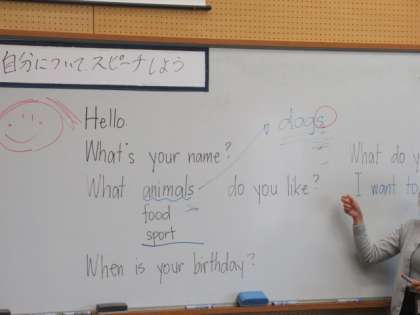 自分について スピーチしよう
Hello.
dogs
What's your name?
What do y
What animals do you like?
I want to
food
sport
When is your birthday?